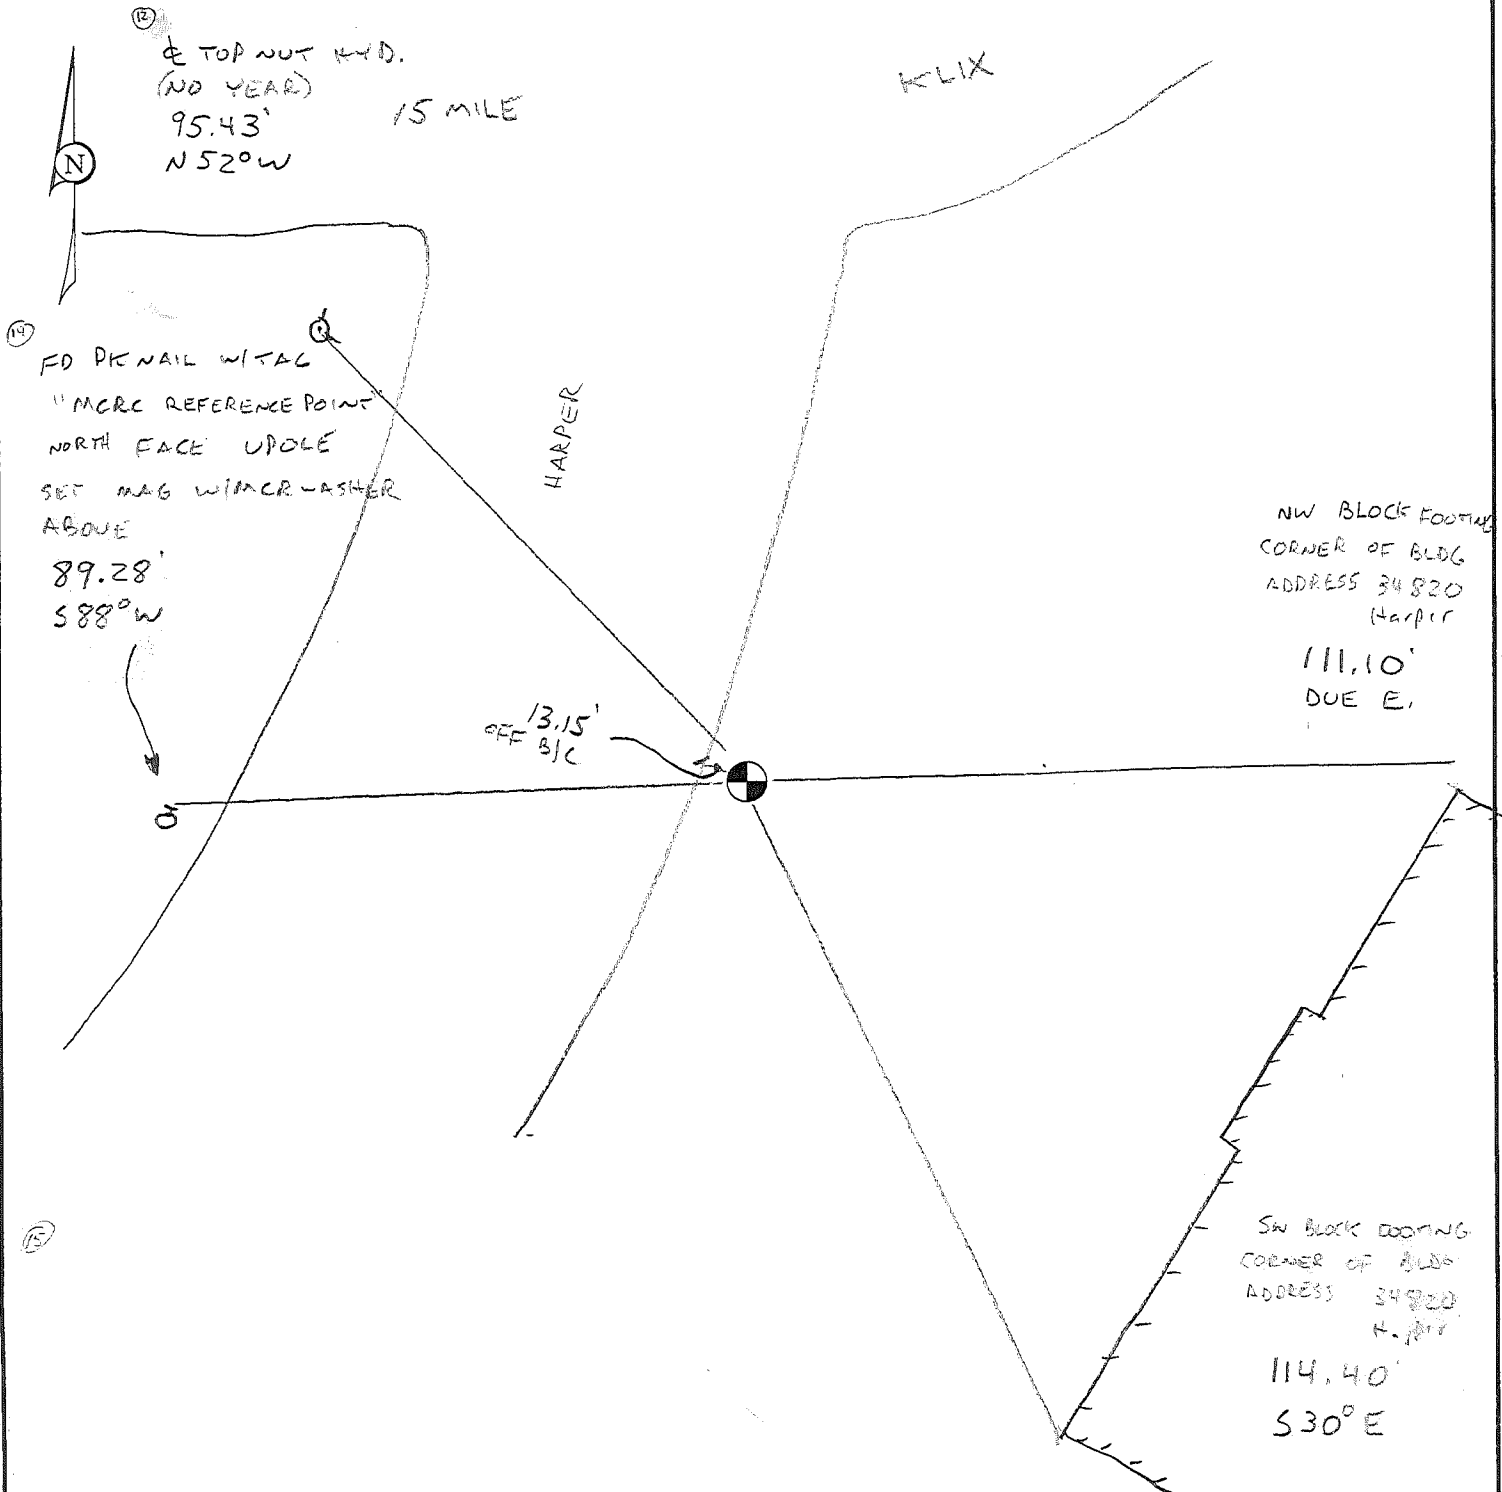 12
℄ TOP NUT HYD.
(NO YEAR)
95.43'
N 52° W
15 MILE
KLIX
N
14
FD PK NAIL W/TAG
"MCRC REFERENCE POINT"
NORTH FACE UPOLE
SET MAG W/MCR WASHER
ABOVE
89.28'
S 88° W
HARPER
NW BLOCK FOOTING
CORNER OF BLDG
ADDRESS 34820
Harper
111.10'
DUE E.
13.15'
OFF B/C
15
SW BLOCK FOOTING
CORNER OF BLDG
ADDRESS 34820
114.40'
S 30° E